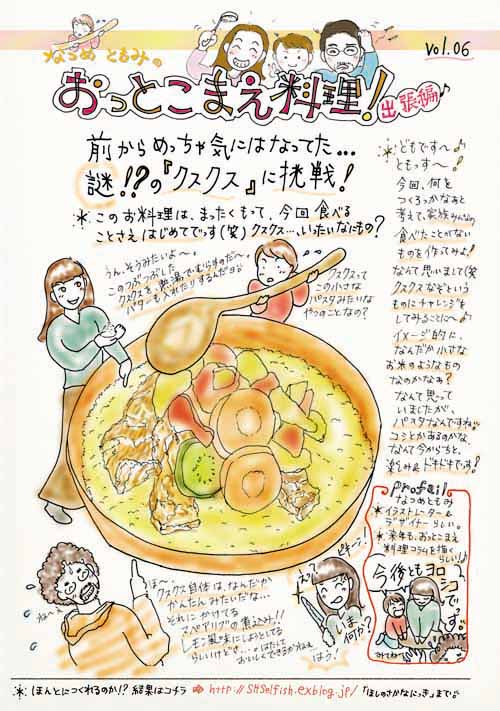 なつめ ともみの
vol.06
おっとこまえ料理!
出張編♪
前からめっちゃ気にはなってた...
謎!?の『クスクス』に挑戦!
*このお料理は、まったくもって、今回食べる
ことさえはじめてでっす(笑)クスクス…いったいなにもの?
うん、そうみたいよ〜。
このつぶつぶした
クスクスを、熱湯でむらすのだ〜。
バターも入れたりするんだヨ
クスクスって
この小さな
パスタみたいな
やつのことなの?
どもで〜す♪
ともっす〜!
今回、何を
つくろっかなぁと
考えて、家族みんなの
食べたことがない
ものを作ってみよ!
なんて思いまして(笑)
クスクスなぞという
ものにチャレンジを
してみることに〜♪
イメージ的に、
なんだか小さな
お米のようなもの
なのかなぁ?
なんて思って
いましたが、
パスタなんですね
コシとかあるのかな、
なんて今からちと、
楽しみ&ドキドキです!
profail
なつめともみ
*イラストレーター&
デザイナーらしい。
*来年も、おっとこまえ
料理コラムを描く
らしい!♪
今後ともヨロ
シコです。
みてね〜
ほ〜、
クスクス自体は、なんだか
かんたんみたいだな…
それにかけてる
スペアリブの煮込み!!
レモン風味にしようとてる
らしいけど…。はたして
おいしくできるかねぇ
ピキーン!
えっ?
ま、
何か?
はう!
*ほんとにつくれるのか!? 結果はコチラ ⇨ http://SHSelfish.exblog.jp/「ほしのさかなにっき」まで。